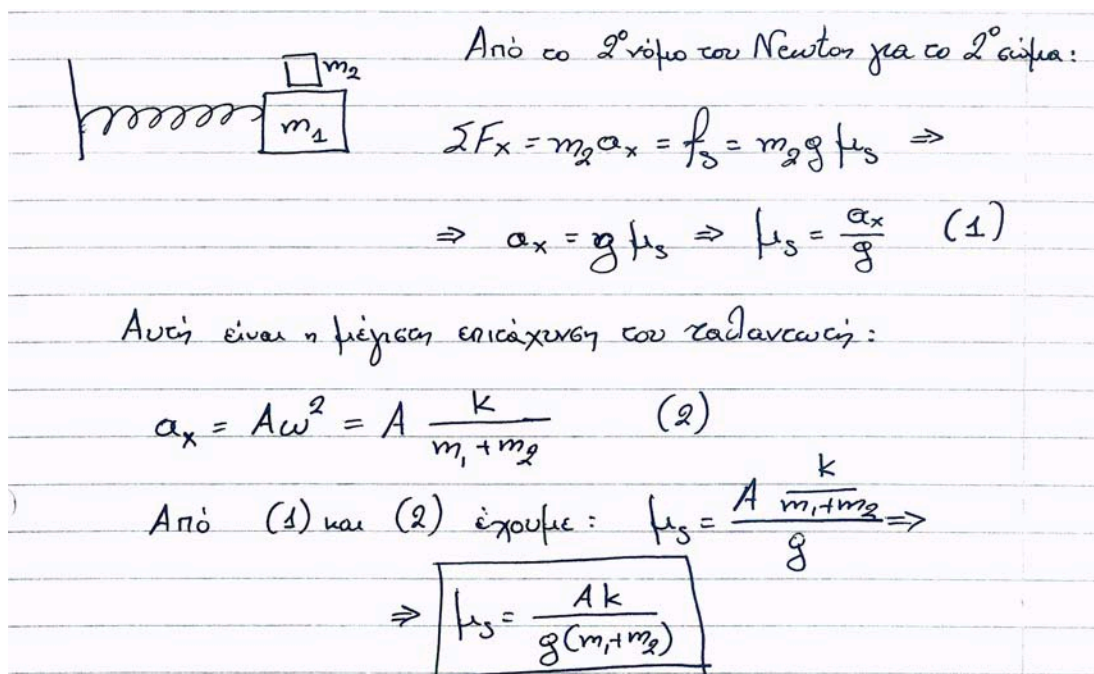 Από το 2º νόμο του Newton για το 2º σώμα:
m2
m1
ΣFx = m2 ax = fs = m2 g μs ⇒
⇒ ax = g μs ⇒ μs = ax/g (1)
Αυτή είναι η μέγιστη επιτάχυνση του ταλαντωτή:
ax = Aω² = A k/(m1+m2) (2)
Από (1) και (2) έχουμε: μs = (A k/(m1+m2))/g ⇒
⇒ μs = Ak/(g(m1+m2))